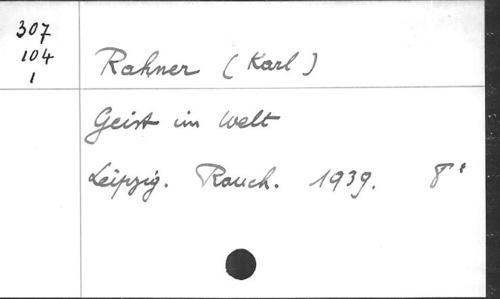 307
104
1
Rahner (Karl)
Geist im Welt
Leipzig. Rauch. 1939. 8°